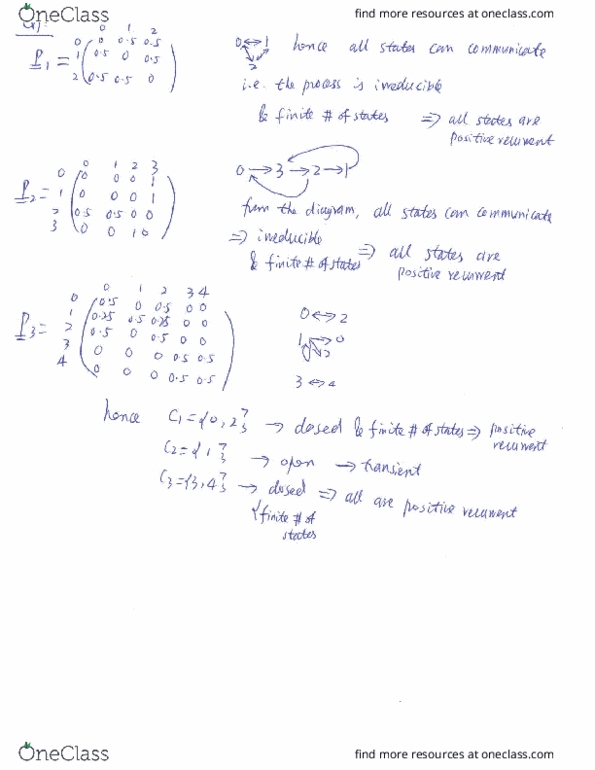 OneClass
find more resources at oneclass.com
0 1 2
P1 =
0 0 0.5 0.5
1 0.5 0 0.5
2 0.5 0.5 0
0 1
2
hence all states can communicate
i.e. the process is irreducible
& finite # of states ⇒ all states are
positive recurrent
0 1 2 3
P2 =
0 0 0 0 1
1 0 0 0 1
2 0.5 0.5 0 0
3 0 0 1 0
0 → 3 → 2 → 1
from the diagram, all states can communicate
⇒ irreducible
& finite # of states ⇒ all states are
positive recurrent
0 1 2 3 4
P3 =
0 0.5 0 0.5 0 0
1 0.25 0.5 0.25 0 0
2 0.5 0 0.5 0 0
3 0 0 0 0.5 0.5
4 0 0 0 0.5 0.5
0 ↔ 2
1 0
2
3 ↔ 4
hence C1 = {0, 2} → closed & finite # of states ⇒ positive
recurrent
C2 = {1} → open → transient
C3 = {3, 4} → closed ⇒ all are positive recurrent
& finite # of
states
OneClass
find more resources at oneclass.com